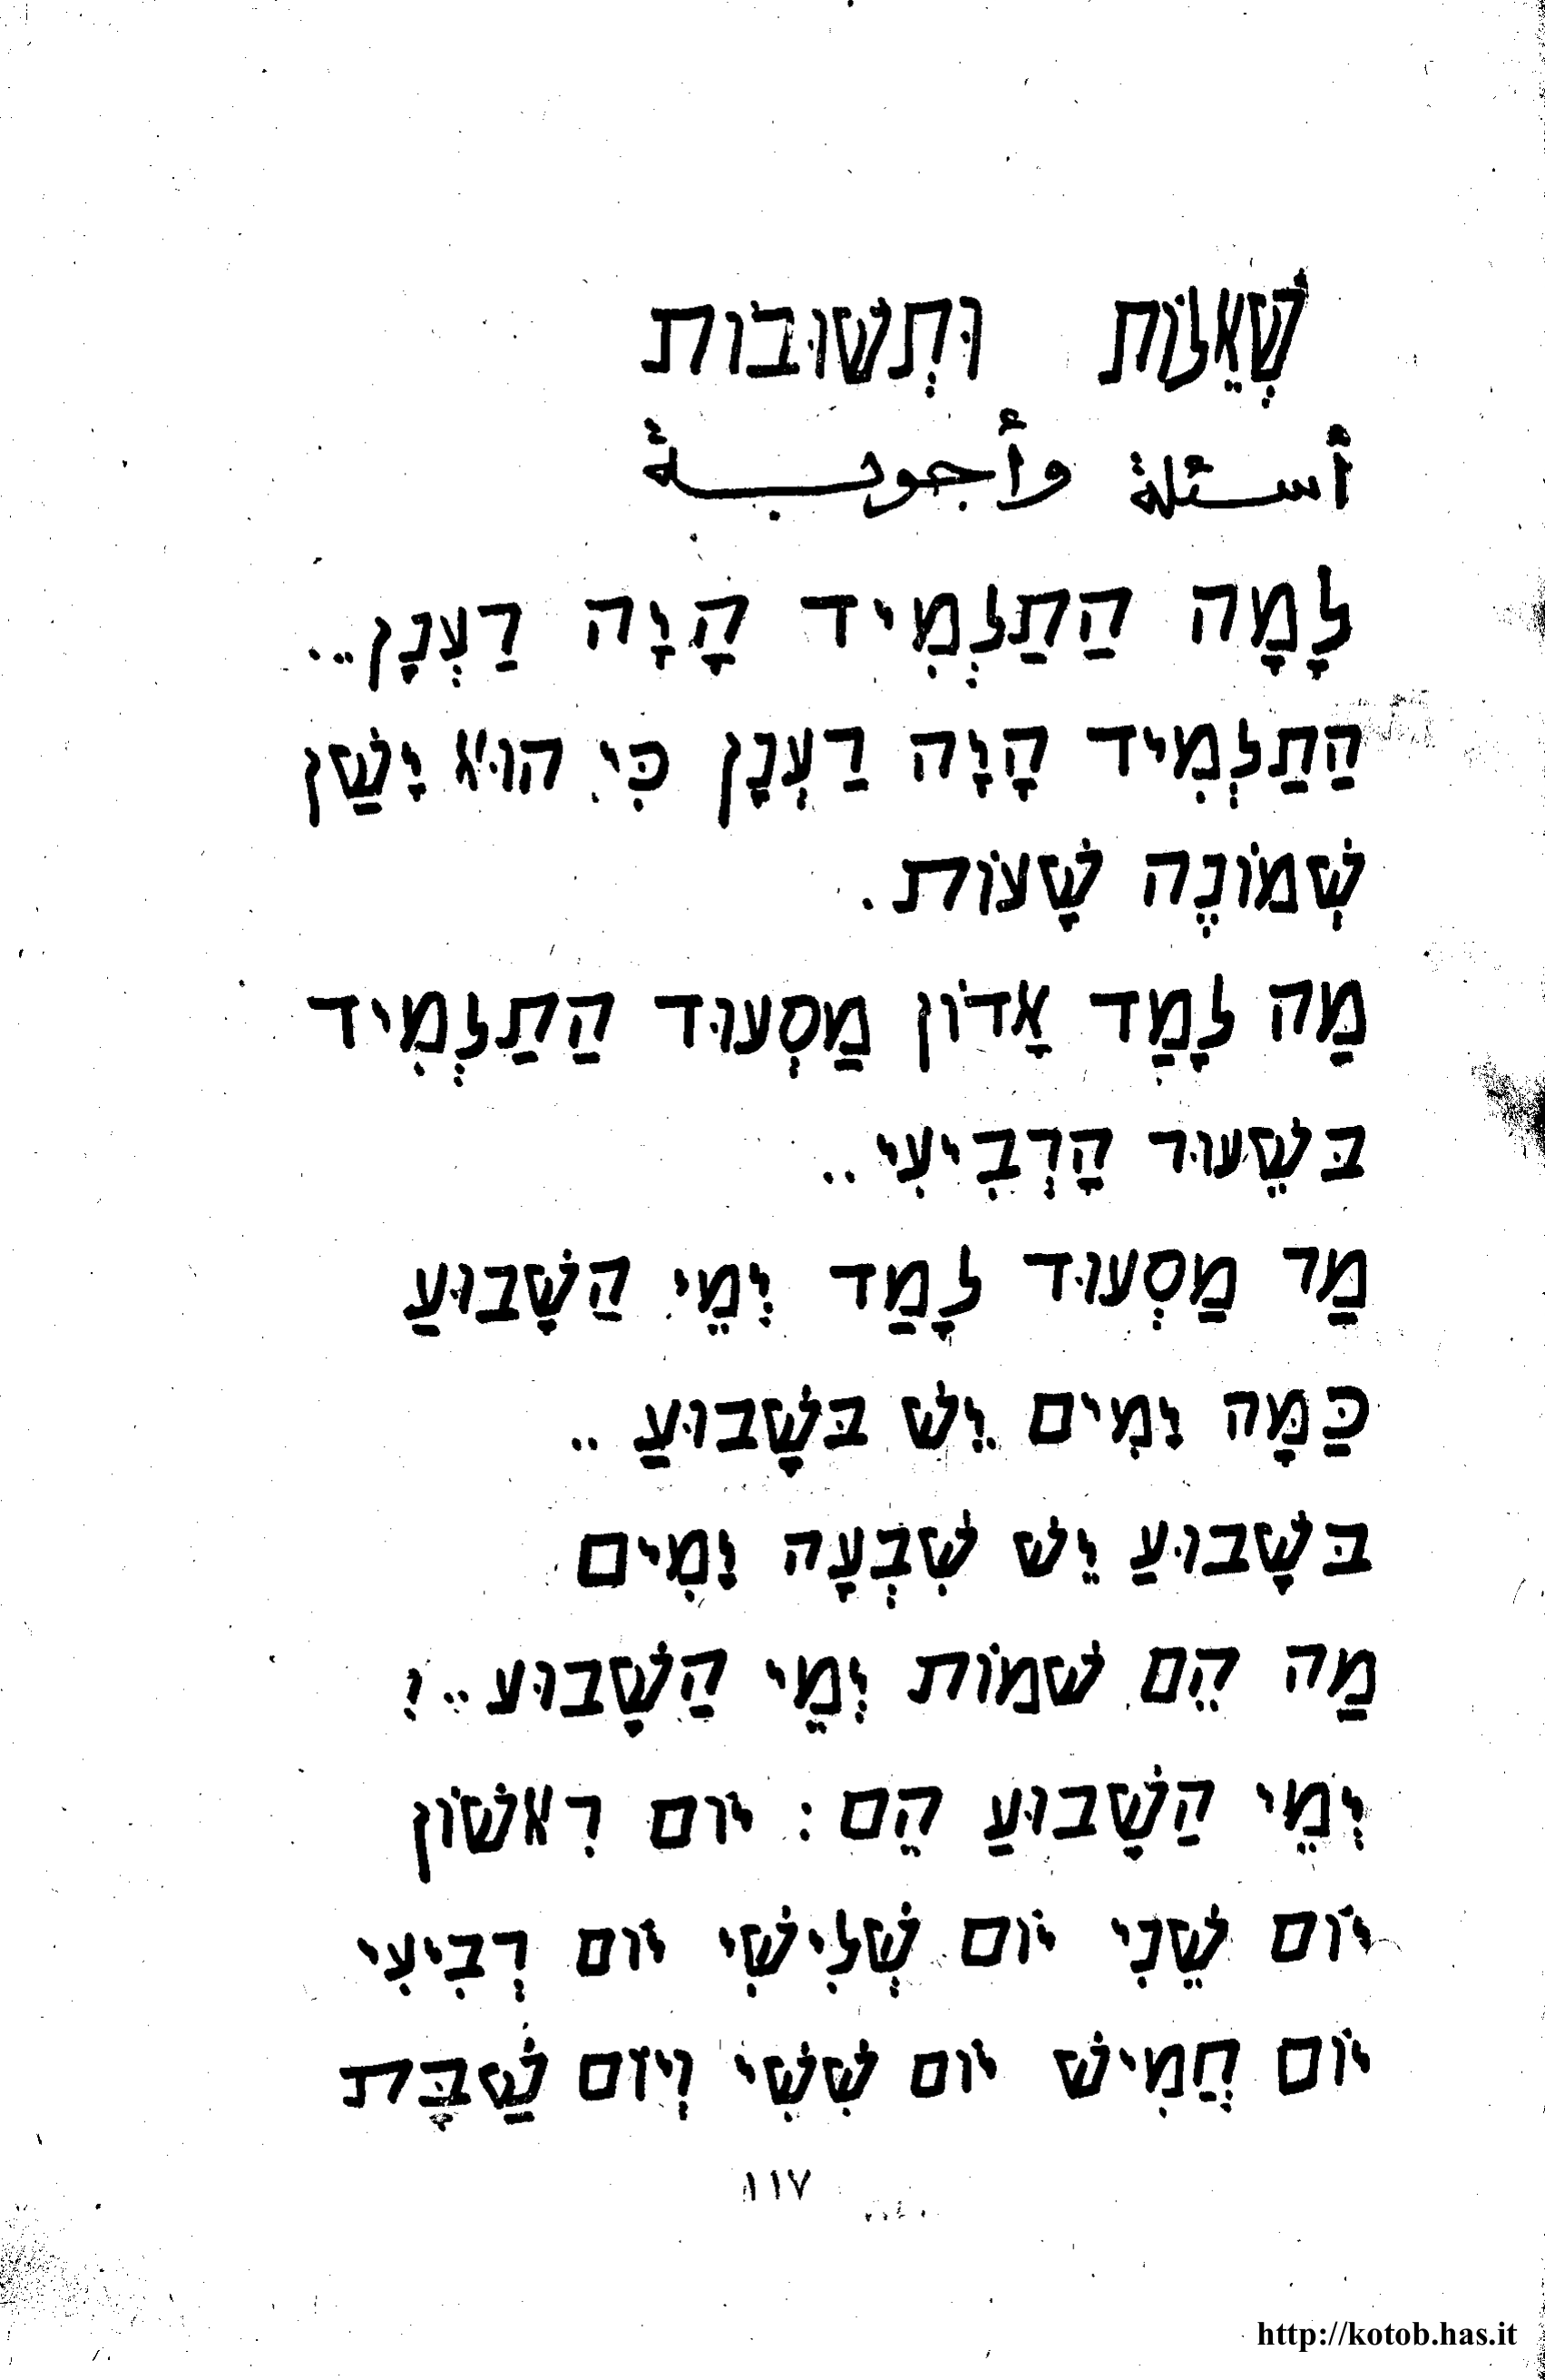 שְׁאֵלוֹת וּתְשׁוּבוֹת
أسئلة وأجوبة
לָמָה הַתַּלְמִיד הָיָה רַעֲנָן..
הַתַלְמִיד הָיָה רַעְנָן כִּי הוּא יָשַׁן
שְׁמוֹנֶה שָׁעוֹת.
מַה לָמַד אָדוֹן מַסְעוּד הַתַלְמִיד
בּשֵׁעוּר הָרְבִיעִי..
מַר מַסְעוּד לָמַד יְמֵי הַשָׁבוּעַ
כַּמָּה יָמִים יֵשׁ בּשָׁבוּעַ..
בּשָׁבוּעַ יֵשׁ שִׁבְעָה יָמִים
מַה הֵם שׁמוֹת יְמֵי הַשָׁבוּע..י
יְמֵי הַשָׁבוּעַ הֵם : יוֹם רִאשׁוֹן
יוֹם שֵׁנִי יוֹם שְׁלִישִׁי יוֹם רְבִיעִי
יוֹם חֲמִישׁ יוֹם שִׁשִׁי וְיוֹם שַׁבָּת
١١٧
http://kotob.has.it